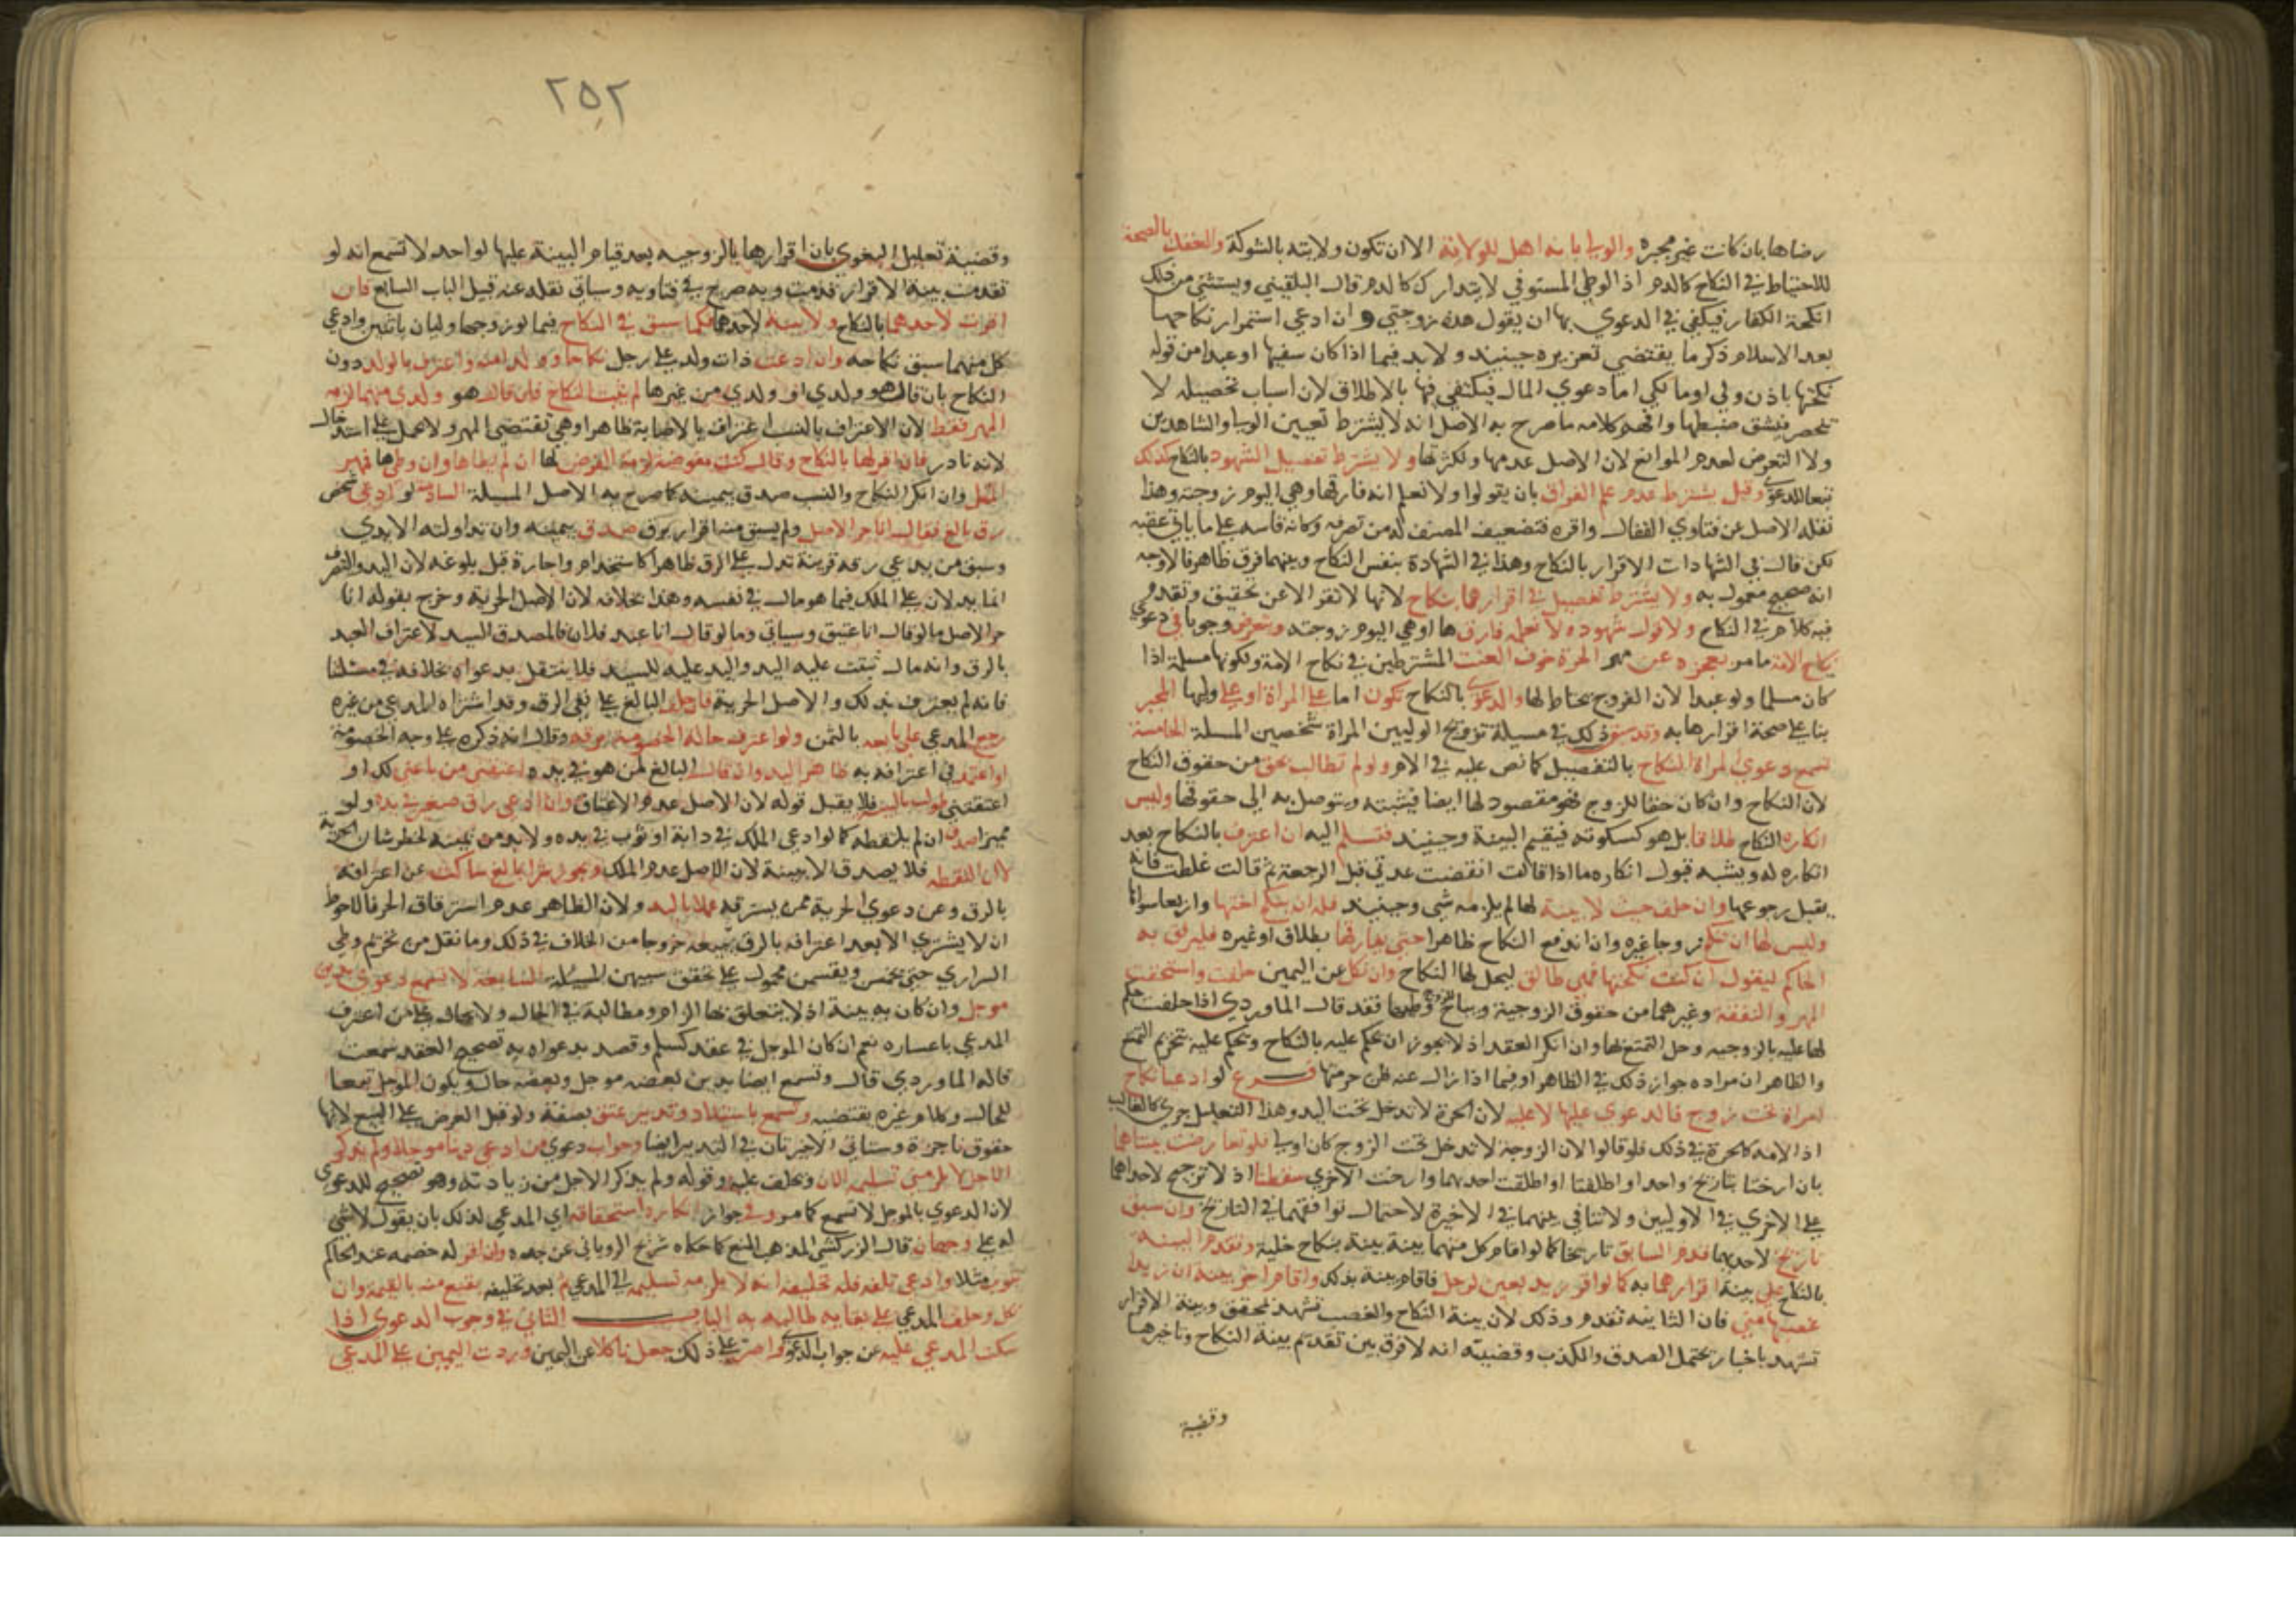 رضاها بان كانت غير مجبرة والولي بانه اهل للولاية الا ان تكون ولايته بالشوكة والعقد بالصحة
للاحتياط في النكاح كالدم اذ الوطي المستوفي لا يتدارك كالدم قال البلقيني ويستثني من ذلك
انكحة الكفار فيكفي في الدعوي بها ان يقول هذه زوجتي وان ادعي استمرار نكاحها
بعد الاسلام ذكر ما يقتضي تعزيره حينيذ ولا بد فيما اذا كان سفيها او عبدا من قوله
نكحتها باذن وليي او مالكي اما دعوي المال فيكتفي فيها بالاطلاق لان اسباب تحصيله لا
تنحصر فيشق ضبطها وافهم كلامه ما صرح به الاصل انه لا يشترط تعيين الولي والشاهدين
ولا التعرض لعدم الموانع لان الاصل عدمها ولكثرتها ولا يشترط تفصيل الشهود بالنكاح كذلك
تبعا للدعوي وقيل يشترط عدم علم الفراق بان يقولوا ولا نعلم انه فارقها وهي اليوم زوجته وهذا
نقله الاصل عن فتاوي القفال واقره فتضعيف المصنف له من تصرفه وكانه قاسه علي ما ياتي عقبه
لكن قال في الشهادات الاقرار بالنكاح وهذا في الشهادة بنفس النكاح وبينهما فرق ظاهر فالاوجه
انه صحيح معمول به ولا يشترط تفصيل في اقرارها بنكاح لانها لا تقر الا عن تحقيق وتقدم
فيه كلام في النكاح ولا قول شهوده لا نعلمه فارقها او هي اليوم زوجته ويتعرض وجوبا في دعوي
نكاح الامة ما مر بعجزه عن مهر الحرة خوف العنت المشترطين في نكاح الامة وبكونها مسلمة اذا
كان مسلما ولو عبدا لان الفروج يحتاط لها والدعوي بالنكاح تكون اما علي المراة او علي وليها المجبر
بنا علي صحة اقرارها به وقد سبق ذلك في مسيلة تزويج الوليين المراة شخصين المسلة الخامسة
تسمع دعوي المراة النكاح بالتفصيل كما نص عليه في الام ولو لم تطالب بحق من حقوق النكاح
لان النكاح وان كان حقا للزوج فهو مقصود لها ايضا فيثبته ويتوصل به الي حقوقها وليس
انكاره النكاح طلاقا بل هو كسكوته فيقيم البينة وحينيذ فتسلم اليه ان اعترف بالنكاح بعد
انكاره له ويشبه قبول انكاره ما اذا قالت انقضت عدتي قبل الرجعة ثم قالت غلطت فانه
يقبل رجوعها وان حلف حيث لا بينة لها لم يلزمه شي وحينيذ فله ان ينكح اختها واربعا سواها
وليس لها ان تنكح زوجا غيره وان اندفع النكاح ظاهرا حتي يفارقها بطلاق او غيره فليرفق به
الحاكم ليقول ان كنت نكحتها فهي طالق ليحل لها النكاح وان نكل عن اليمين حلفت واستحقت
المهر والنفقة وغيرهما من حقوق الزوجية ويباح للزوج وطيها فقد قال الماوردي اذا حلفت حكم
لها عليه بالزوجيه وحل التمتع بها وان انكر العقد اذ لا يجوز ان يحكم عليه بالنكاح ويحكم عليه بتحريم التمتع
والظاهر ان مراده جواز ذلك في الظاهر او فيما اذا زال عنه ظن حرمتها فرع لو ادعيا نكاح
امراة تحت زوج فالدعوي عليها لا عليه لان الحرة لا تدخل تحت اليد وهذا التعليل جري كالغالب
اذ الامة كالحرة في ذلك فلو قالوا لان الزوجة لا تدخل تحت الزوج كان اولي فلو تعارضت بينتاهما
بان ارختا بتاريخ واحد او اطلقتا او اطلقت احدهما وارخت الاخري سقطتا اذ لا ترجيح لاحداهما
علي الاخري في الاوليين ولا تنافي بينهما في الاخيرة لاحتمال توافقهما في التاريخ وان سبق
تاريخ لاحدهما قدم السابق تاريخا كما لو اقام كل منهما بينة بنكاح خلية وتقدم البينة
بالنكاح علي بينة اقرارهما به كما لو اقر زيد بعين لرجل فاقام بينة بذلك واقام اخر بينة ان زيدا
غصبها مني فان الثانية تقدم وذلك لان بينة النكاح والغصب تشهد بمحقق وبينة الاقرار
تشهد باخبار يحتمل الصدق والكذب وقضيته انه لا فرق بين تقديم بينة النكاح وتاخيرها
وقضية
٢٥٢
وقضية تعليل البغوي بان اقرارها بالزوجيه بعد قيام البينة عليها لواحد لا تسمع انه لو
تقدمت بينة الاقرار قدمت وبه صرح في فتاويه وسياتي نقله عنه قبيل الباب السابع فان
اقرت لاحدهما بالنكاح ولا بينة لاحدهما فكما سبق في النكاح فيما لو زوجها وليان باثنين وادعي
كل منهما سبق نكاحه وان ادعت ذات ولد علي رجل نكاحا وولدا منه واعترف بالولد دون
النكاح بان قال هو ولدي او ولدي من غيرها لم يثبت النكاح فان قال هو ولدي منها لزمه
المهر فقط لان الاعتراف بالنسب اعتراف بالاصابة ظاهرا وهي تقتضي المهر ولا يحمل علي استدخال
لانه نادر فان اقر لها بالنكاح وقال كنت مفوضة لزمه الفرض لها ان لم يطاها وان وطيها فمهر
المثل وان انكر النكاح والنسب صدق بيمينه كما صرح به الاصل المسيلة السادسة لو ادعي شخص
رق بالغ فقال انا حر الاصل ولم يسبق منه اقرار برق صدق بيمينه وان تداولته الايدي
وسبق من يدعي رقه قرينة تدل علي الرق ظاهرا كاستخدام واجارة قبل بلوغه لان اليد والتصرف
انما يدلان علي الملك فيما هو مال في نفسه وهذا بخلافه لان الاصل الحرية وخرج بقوله انا
حر الاصل ما لو قال انا عتيق وسياتي وما لو قال انا عبد فلان فالمصدق السيد لاعتراف العبد
بالرق وانه مال ثبتت عليه اليد واليد عليه للسيد فلا ينتقل بدعواه بخلافه في مسئلتنا
فانه لم يعترف بذلك والاصل الحرية فان حلف البالغ علي نفي الرق وقد اشتراه المدعي من غيره
رجع المدعي علي بايعه بالثمن ولو اعترف حالة الخصومة برقه وقال انه ذكره علي وجه الخصومة
او اعتمد في اعترافه به ظاهر اليد وان قال البالغ لمن هو في يده اعتقني من باعني لك او
اعتقتني طولب بالبينة فلا يقبل قوله لان الاصل عدم الاعتاق وان ادعي رق صغير في يده ولو
مميزا صدق ان لم يلتقطه كما لو ادعي الملك في دابة او ثوب في يده ولا بد من يمينه لخطر شان الحرية
لا ان التقطه فلا يصدق الا ببينة لان الاصل عدم الملك ويجوز شرا بالغ ساكت عن اعترافه
بالرق وعن دعوي الحرية ممن يسترقه عملا باليد ولان الظاهر عدم استرقاق الحر فالاحوط
ان لا يشتري الا بعد اعترافه بالرق لبيعه خروجا من الخلاف في ذلك وما نقل من تحريم وطي
السراري حتي تخمس ويقسمن محمول علي تحقق سبيهن المسيلة السابعة لا تسمع دعوي بدين
موجل وان كان به بينة اذ لا يتعلق بها الزام ومطالبة في الحال ولا بحال علي من اعترف
المدعي باعساره نعم ان كان الموجل في عقد كسلم وقصد بدعواه به تصحيح العقد سمعت
قاله الماوردي قال وتسمع ايضا بدين بعضه موجل وبعضه حال ويكون الموجل تبعا
للحال وكلام غيره يقتضيه وتسمع باستيلاد وتدبير عتق بصفة ولو قبل العرض علي البيع لانها
حقوق ناجزة وستاتي الاخيرتان في التدبير ايضا وجواب دعوي من ادعي دينا موجلا ولم يذكر
الاجل لا يلزمني تسليمه الان ويحلف عليه وقوله ولم يذكر الاجل من زيادته وهو تصحيح للدعوي
لان الدعوي بالموجل لا تسمع كما مر وفي جواز انكاره استحقاقه اي المدعي لذلك بان يقول لا شي
له علي وجهان قال الزركشي المذهب المنع كما حكاه شريح الروياني عن جده وان اقر له خصمه عند الحاكم
بثوب مثلا وادعي تلفه فله تحليفه انه لا يلزمه تسليمه الي المدعي ثم بعد تحليفه يقنع منه بالقيمة وان
نكل وحلف المدعي علي بقايه طالبه به الباب الثاني في وجوب الدعوي اذا
سكت المدعي عليه عن جواب الدعوي واصر علي ذلك جعل ناكلا عن اليمين وردت اليمين علي المدعي